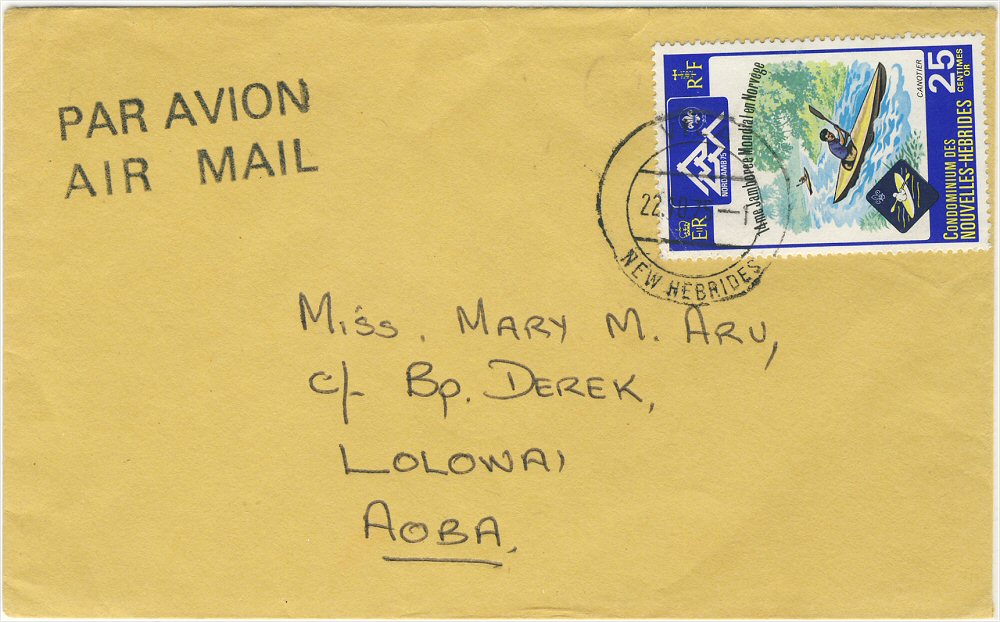 PAR AVION
AIR MAIL
Miss. MARY M. ARU,
c/- Bp. DEREK,
LOLOWAI
AOBA.
CONDOMINIUM DES
NOUVELLES-HEBRIDES
25
CENTIMES
OR
CANOTIER
14me Jamboree Mondial en Norvège
RF
NORDJAMB 75
EIIR
22.
NEW HEBRIDES